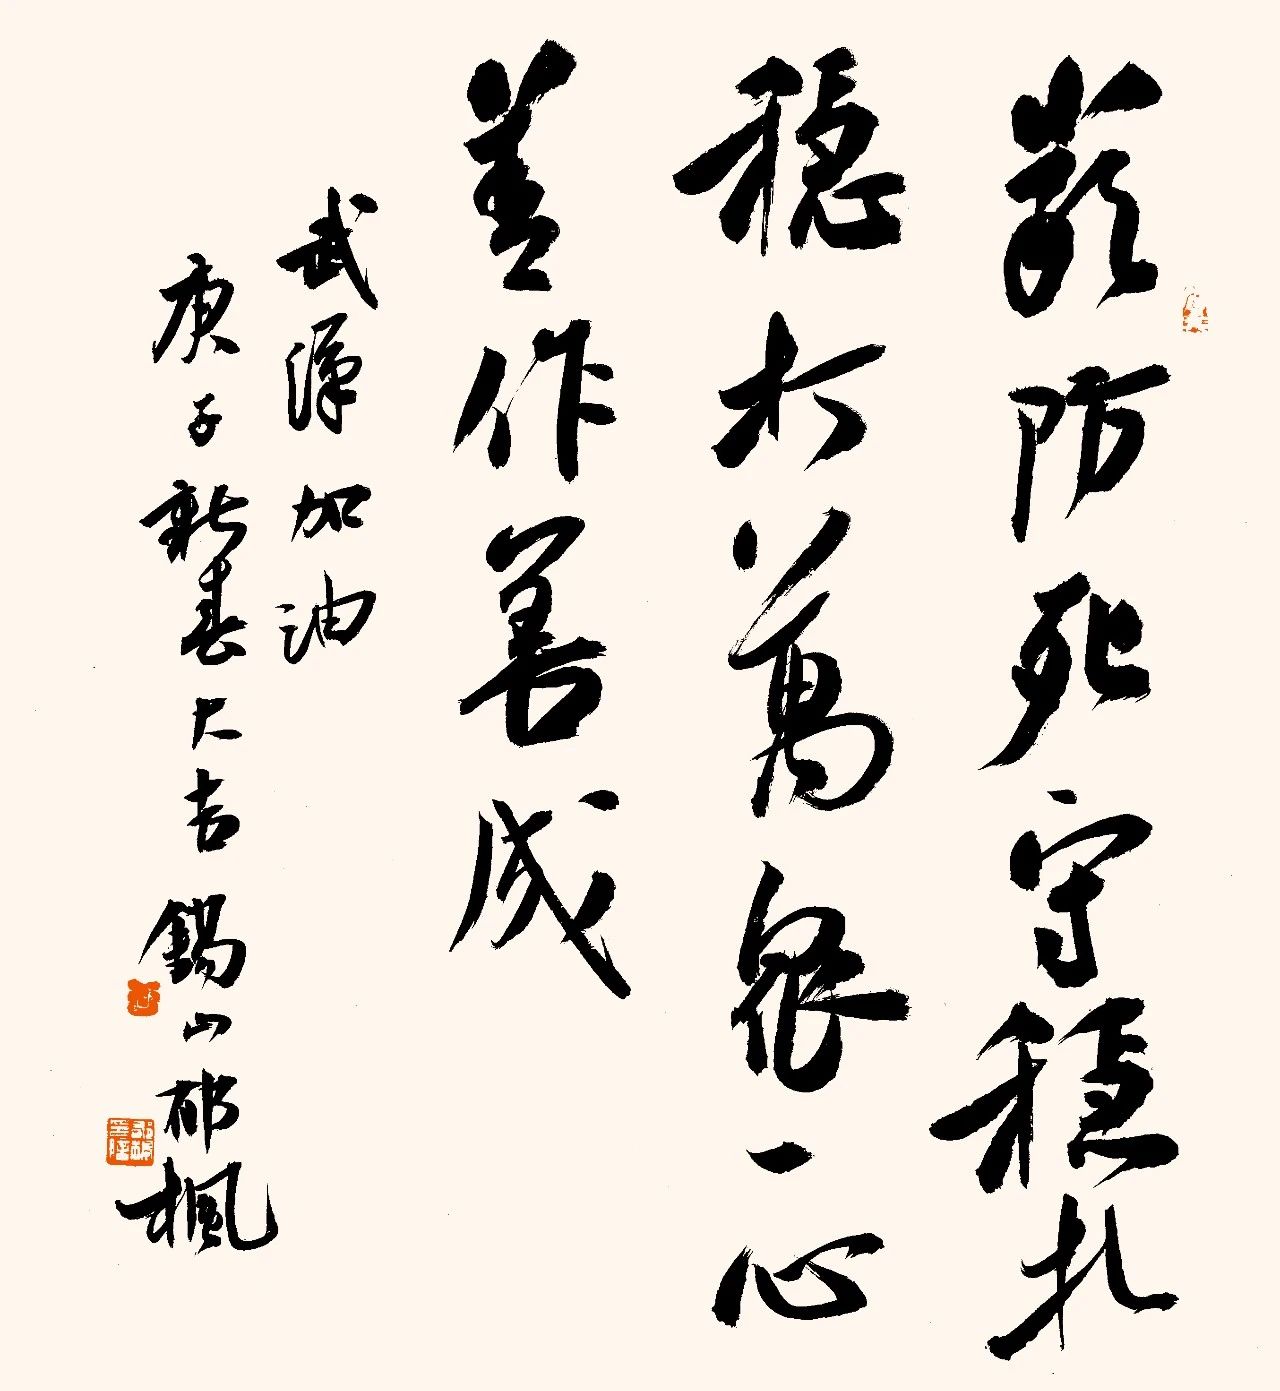 嚴防死守穩扎
穩打萬眾一心
善作善成
武漢加油
庚子新春大吉 錫山邵楓